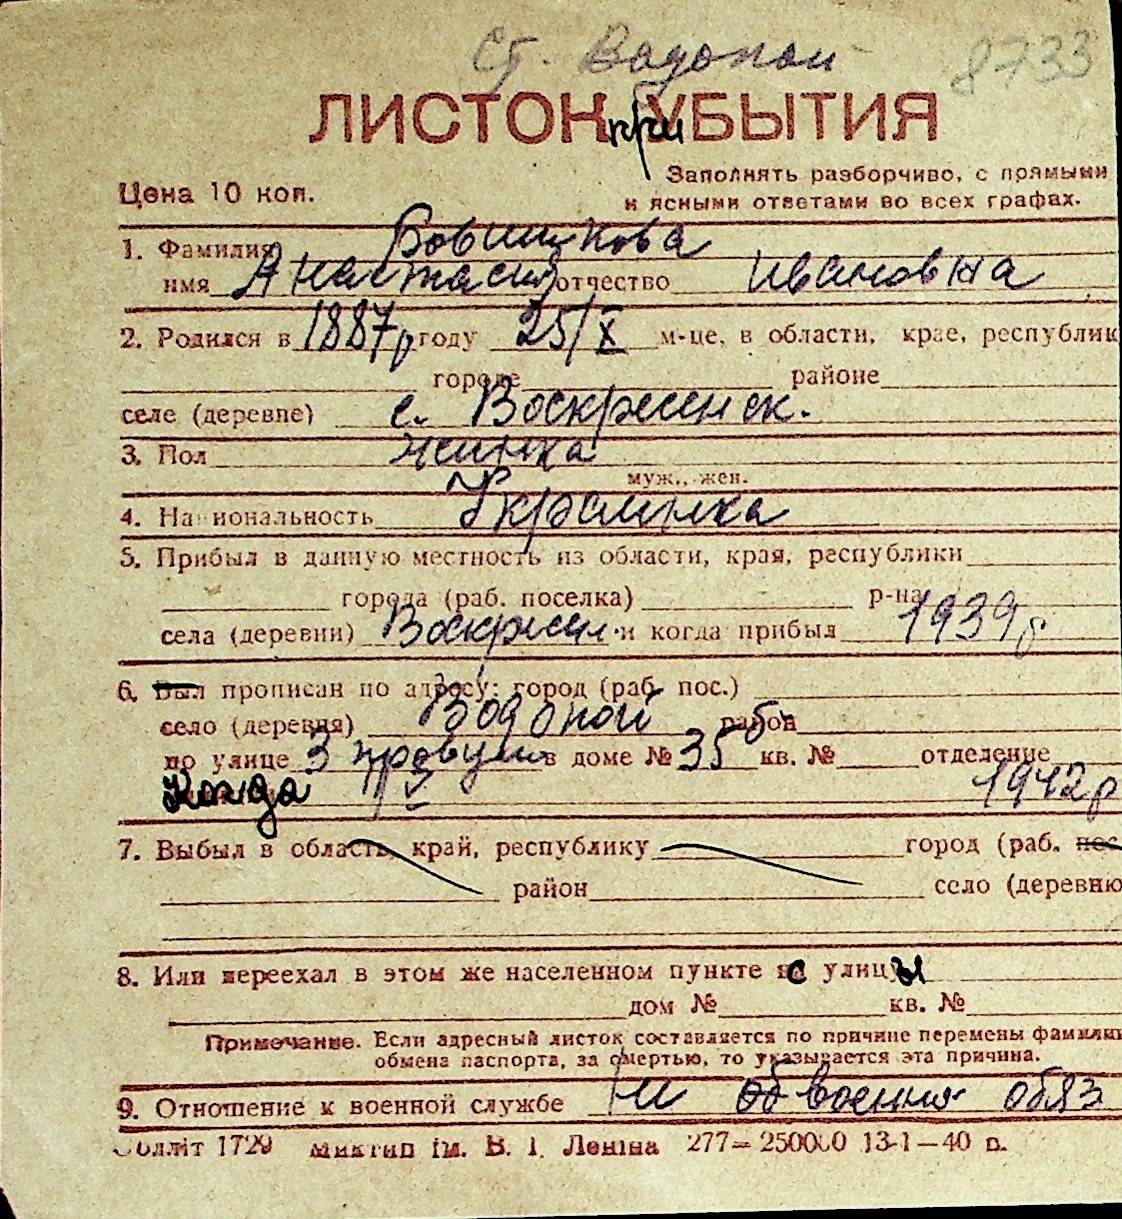 Ст. Водопой
8733
ЛИСТОК при УБЫТИЯ
Заполнять разборчиво, с прямыми
Цена 10 коп.
и ясными ответами во всех графах.
1. Фамилия
имя Анастасия отчество Ивановна
2. Родился в 1887р году 25/X м-це, в области, крае, республик
городе районе
селе (деревне) с. Воскресенск.
3. Пол жинка
муж., жен.
4. Национальность Украинка
5. Прибыл в данную местность из области, края, республики
города (раб. поселка) р-на
села (деревни) Воскресен. и когда прибыл 1939р.
6. Был прописан по адресу: город (раб. пос.)
село (деревня) Водопой район
по улице 3 провул в доме № 35б кв. № отделение
Когда 1942р
7. Выбыл в область, край, республику город (раб. пос
район село (деревню
8. Или переехал в этом же населенном пункте с улицы
дом № кв. №
Примечание. Если адресный листок составляется по причине перемены фамилии
обмена паспорта, за смертью, то указывается эта причина.
9. Отношение к военной службе Ни обвоенна обяз
Обллiт 1729 Миктип iм. В. I. Ленiна 277—250000 13-1—40 р.